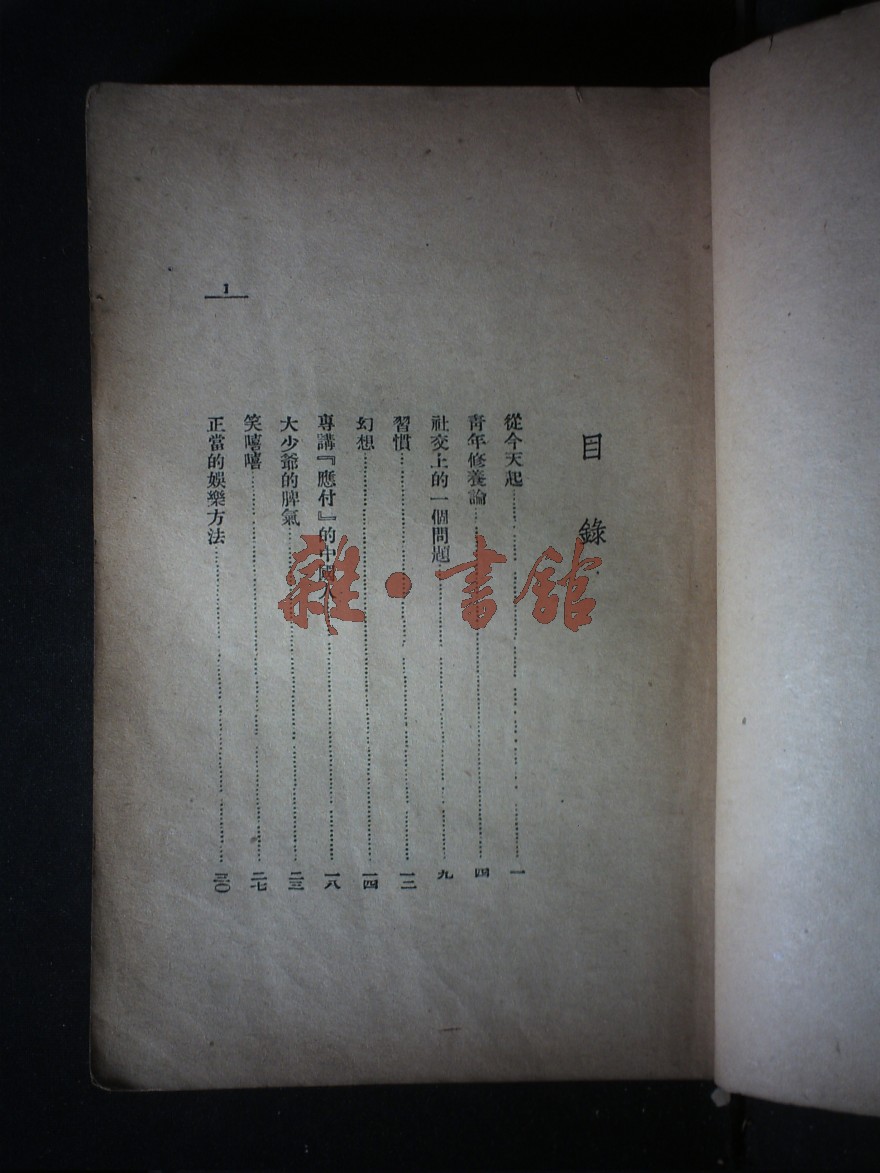 目錄
從今天起……一
靑年修養論……四
社交上的一個問題……九
習慣……一二
幻想……一四
專講『應付』的中國人……一八
大少爺的脾氣……二三
笑嘻嘻……二七
正當的娛樂方法……三〇
1
雜·書館